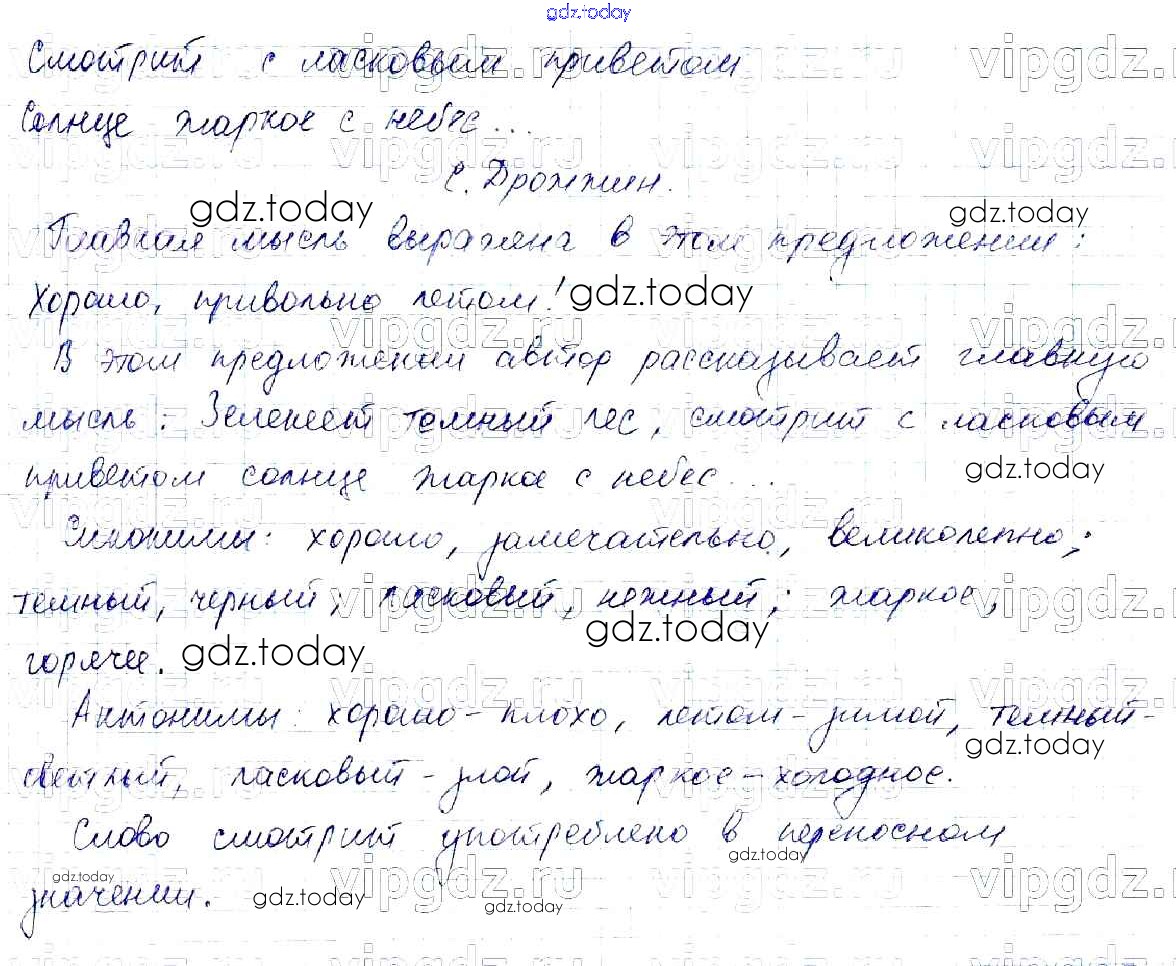 gdz.today
Смотрит с ласковым приветом
Солнце жаркое с небес...
С. Дрожжин.
Главная мысль выражена в этом предложении:
Хорошо, привольно летом!
В этом предложении автор рассказывает главную
мысль: Зеленеет темный лес, смотрит с ласковым
приветом солнце жаркое с небес...
Синонимы: хорошо, замечательно, великолепно;
темный, черный; ласковый, нежный; жаркое,
горячее.
Антонимы: хорошо - плохо, летом - зимой, темный -
светлый, ласковый - злой, жаркое - холодное.
Слово смотрит употреблено в переносном
значении.